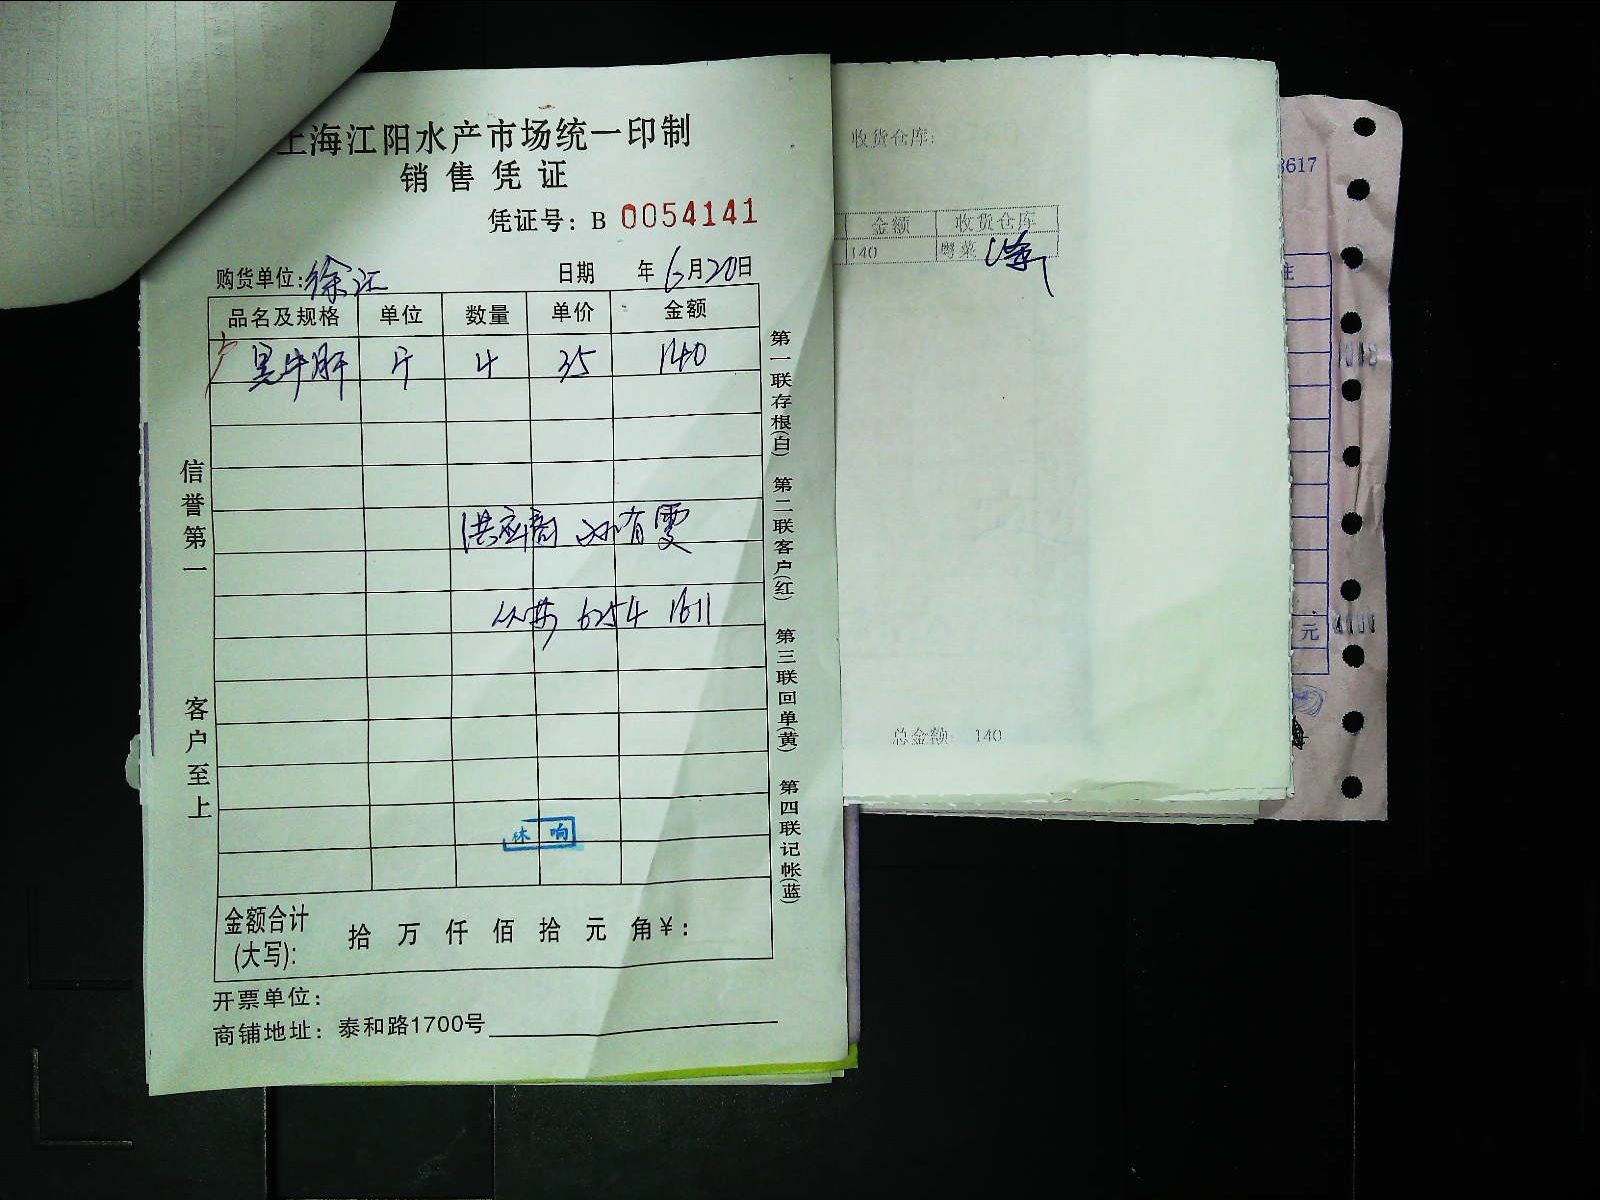 上海江阳水产市场统一印制
销售凭证
凭证号：B 0054141
购货单位：徐汇 日期 年6月20日
品名及规格 单位 数量 单价 金额
黑牛肝 斤 4 35 140
供应商 有雯
6254 1611
休 响
金额合计(大写)： 拾 万 仟 佰 拾 元 角￥：
开票单位：
商铺地址：泰和路1700号
信誉第一 客户至上
第一联存根(白) 第二联客户(红) 第三联回单(黄) 第四联记帐(蓝)
收货仓库:
金额 收货仓库
140 粤菜
总金额: 140
3617
注
元